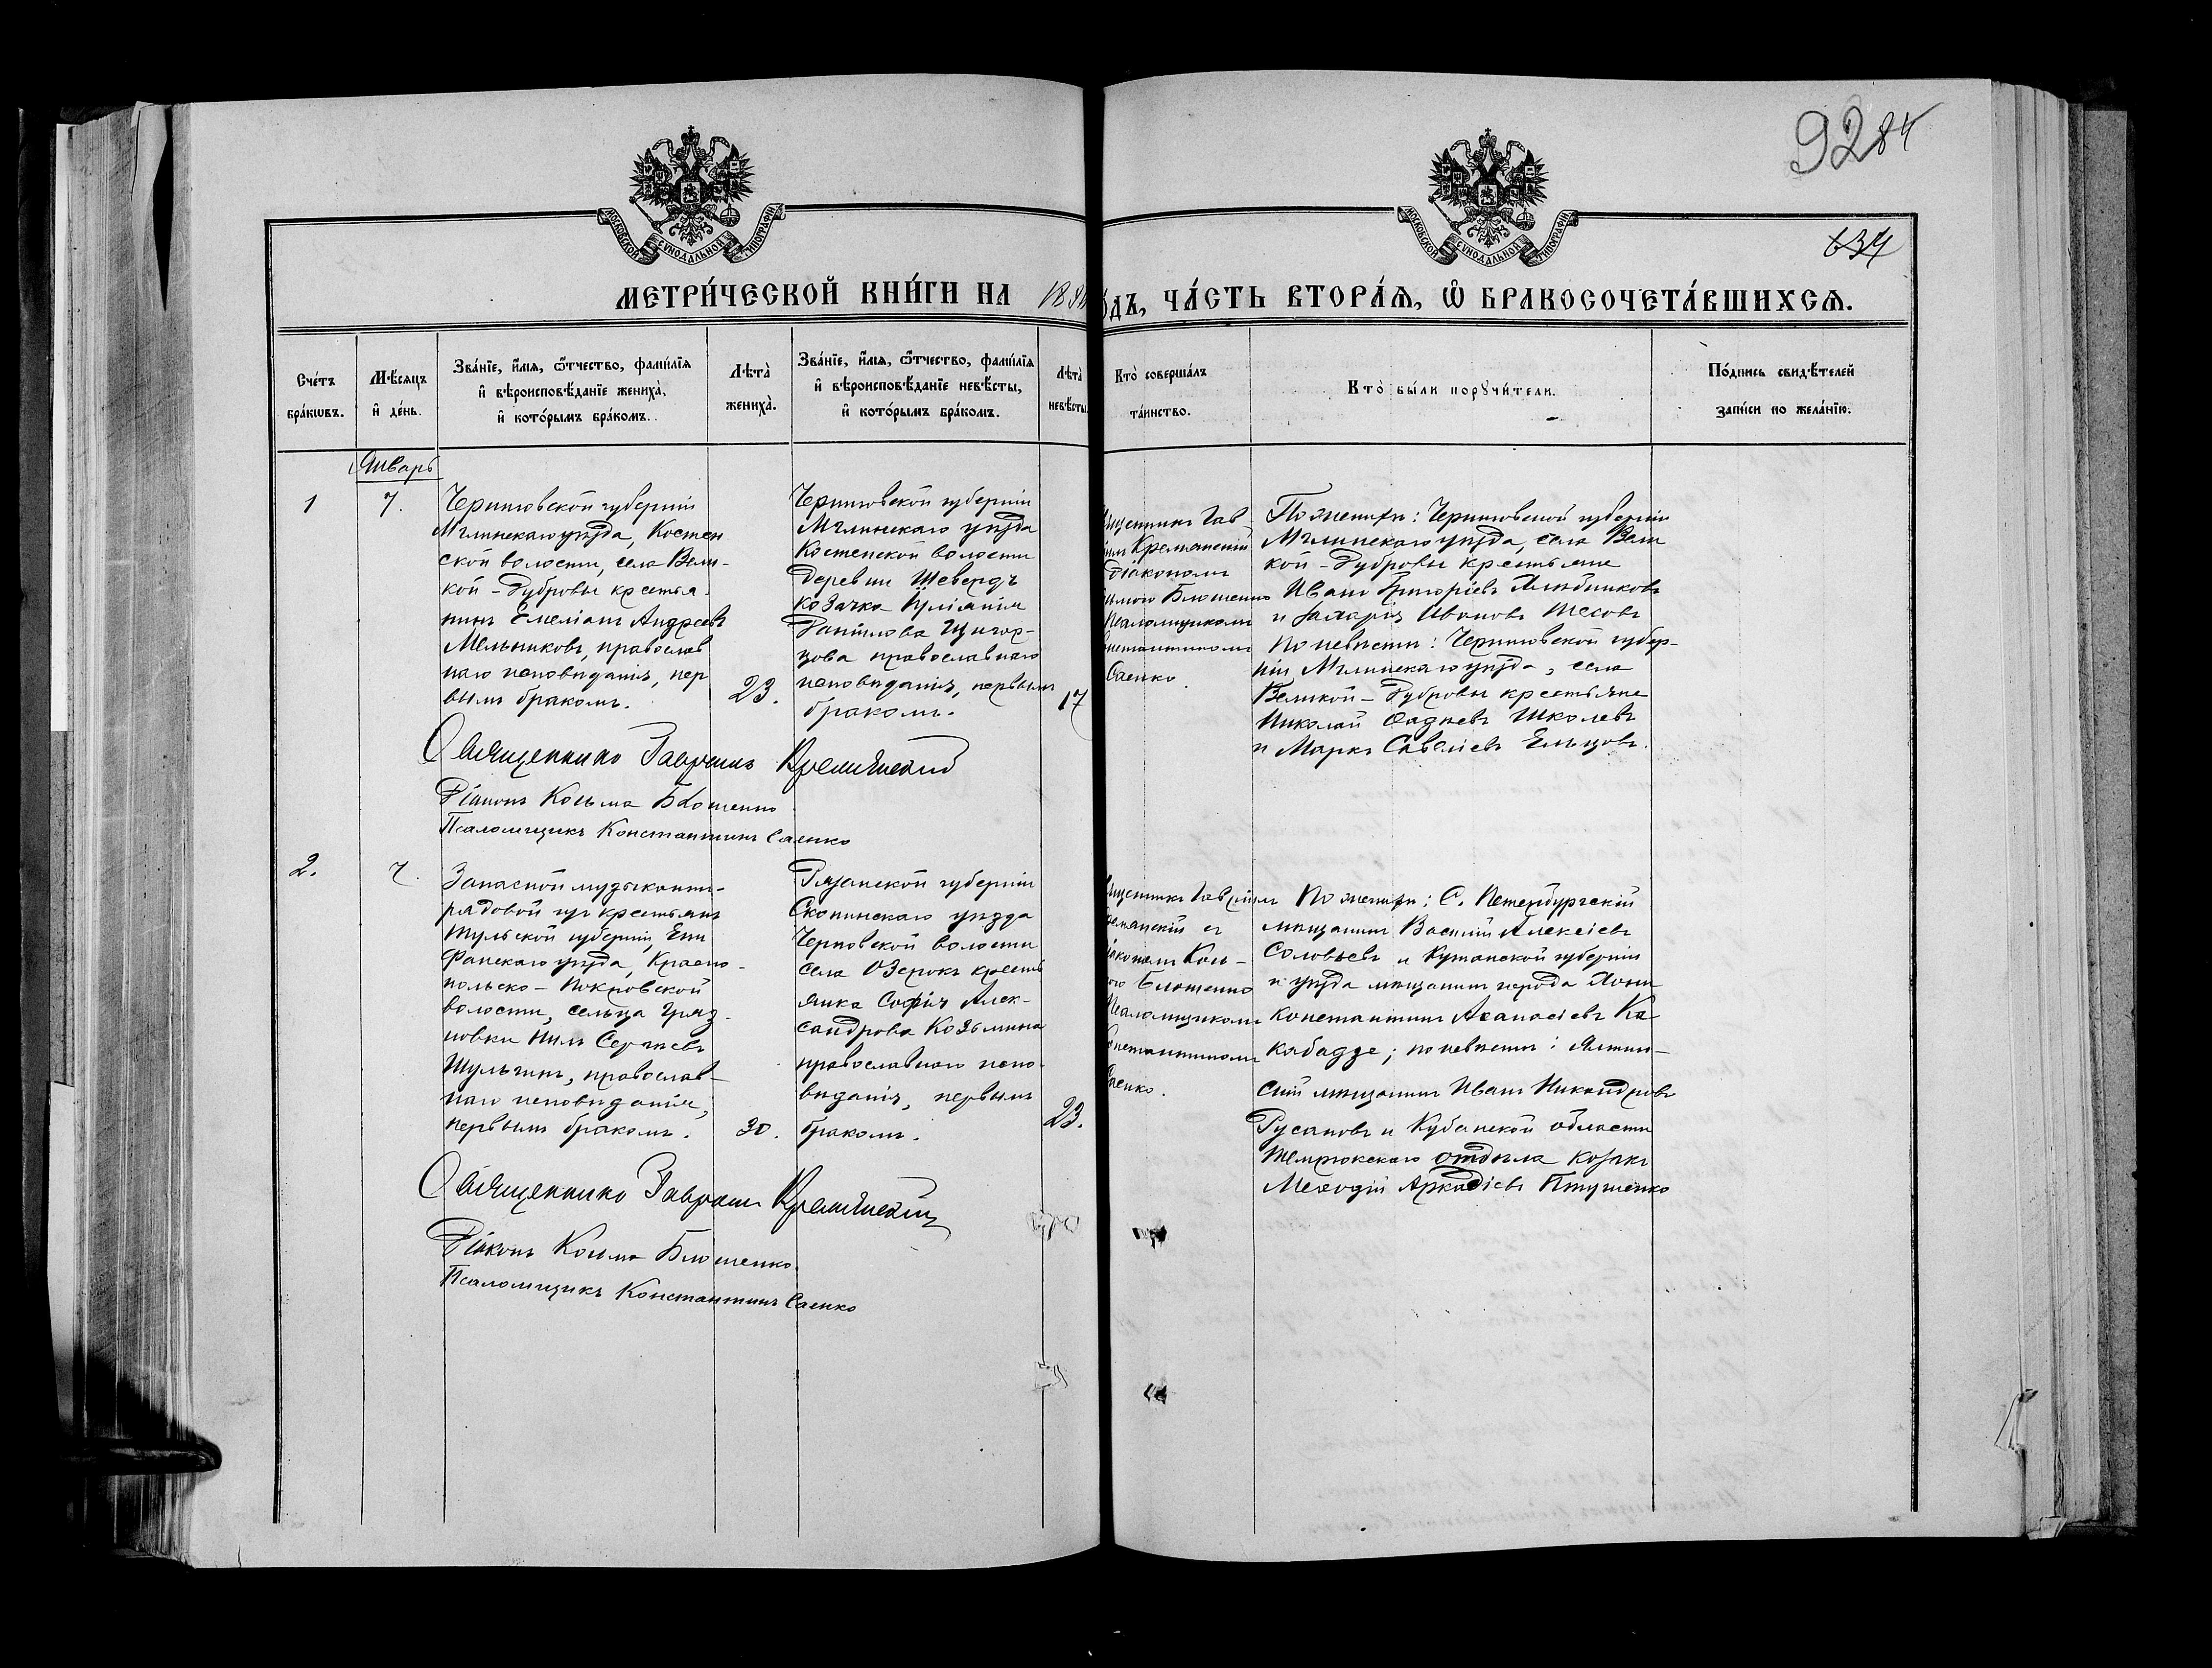 9284
634
МОСКОВСКОЙ СѴНОДАЛЬНОЙ ТИПОГРАФІИ
МОСКОВСКОЙ СѴНОДАЛЬНОЙ ТИПОГРАФІИ
МЕТРИ́ЧЕСКОЙ КНИ́ГИ НА 188
ОДЪ, ЧА́СТЬ ВТОРА́Ѧ, Ѽ БРАКОСОЧЕТА́ВШИХСѦ.
Сче́тъ
бра́кѡвъ.
Мѣ́сѧцъ
и҆ де́нь.
Зва́нїе, и҆́мѧ, ѻ҆́тчество, фами́лїѧ
и҆ вѣроисповѣ́данїе жениха̀,
и҆ кото́рымъ бра́комъ.
Лѣта̀
жениха̀.
Зва́нїе, и҆́мѧ, ѻ҆́тчество, фами́лїѧ
и҆ вѣроисповѣ́данїе невѣ́сты,
и҆ кото́рымъ бра́комъ.
Лѣта̀
невѣ́сты.
Кто̀ соверша́лъ
та́инство.
Кто̀ бы́ли порꙋчи́тели.
По́дпись свидѣ́телей
за́писи по жела́нїю.
Январь
1
7.
Черниговской губерніи
Мглинскаго уѣзда, Костен
ской волости, села Вели-
кой-Дубровы крестья-
нинъ Емеліанъ Андреевъ
Мельниковъ, православ
наго исповѣданія, пер
вымъ бракомъ.
23.
Черниговской губерніи
Мглинскаго уѣзда
Костенской волости
деревни Шевердъ
козачка Іуліанія
Даніилова
православнаго
исповѣданія, первымъ
бракомъ.
17
щенникъ Гав-
Кремянскій
діакономъ
Блошенко
Псаломщикомъ
нстантиномъ
Саенко.
По женихѣ: Черниговской губерніи
Мглинскаго уѣзда, села Вели
кой-Дубровы крестьяне
Иванъ Григоріевъ
и Захарія Ивановъ
по невѣстѣ: Черниговской губер-
ніи, Мглинскаго уѣзда, села
Великой-Дубровы крестьяне
Николай Фадѣевъ Школевъ
и Маркъ Савеліевъ Ельцовъ.
Священникъ Гавріилъ Кремянскій
Діаконъ Косьма Блошенко
Псаломщикъ Константинъ Саенко
2.
7.
Запасной музыкантъ-
рядовой изъ крестьянъ
Тульской губерніи, Епи
фанскаго уѣзда, Красно-
польско-Покровской
волости, сельца Гряз-
новки Нилъ Сергѣевъ
Шульгинъ, православ-
наго исповѣданія,
первымъ бракомъ.
30.
Рязанской губерніи
Скопинскаго уѣзда
Черновской волости
села Озерокъ кресть
янка Софія Алек-
сандрова Козьмина
православнаго испо-
вѣданія, первымъ
бракомъ.
23.
щенникъ Гавріилъ
емянскій съ
іакономъ Кось-
Блошенко
Псаломщикомъ
онстантиномъ
аенко.
По женихѣ: С. Петербургскій
мѣщанинъ Василій Алексіевъ
Соловьевъ и Кутаиской губерніи
и уѣзда мѣщанинъ города Хони
Константинъ Аѳанасіевъ Ка
кабадзе; по невѣстѣ: Ялтин-
скій мѣщанинъ Иванъ Никандровъ
Русановъ и Кубанской области
Темрюкскаго отдѣла козакъ
Меѳодій Аркадіевъ Птушенко
Священникъ Гавріилъ Кремянскій
Діаконъ Косьма Блошенко.
Псаломщикъ Константинъ Саенко